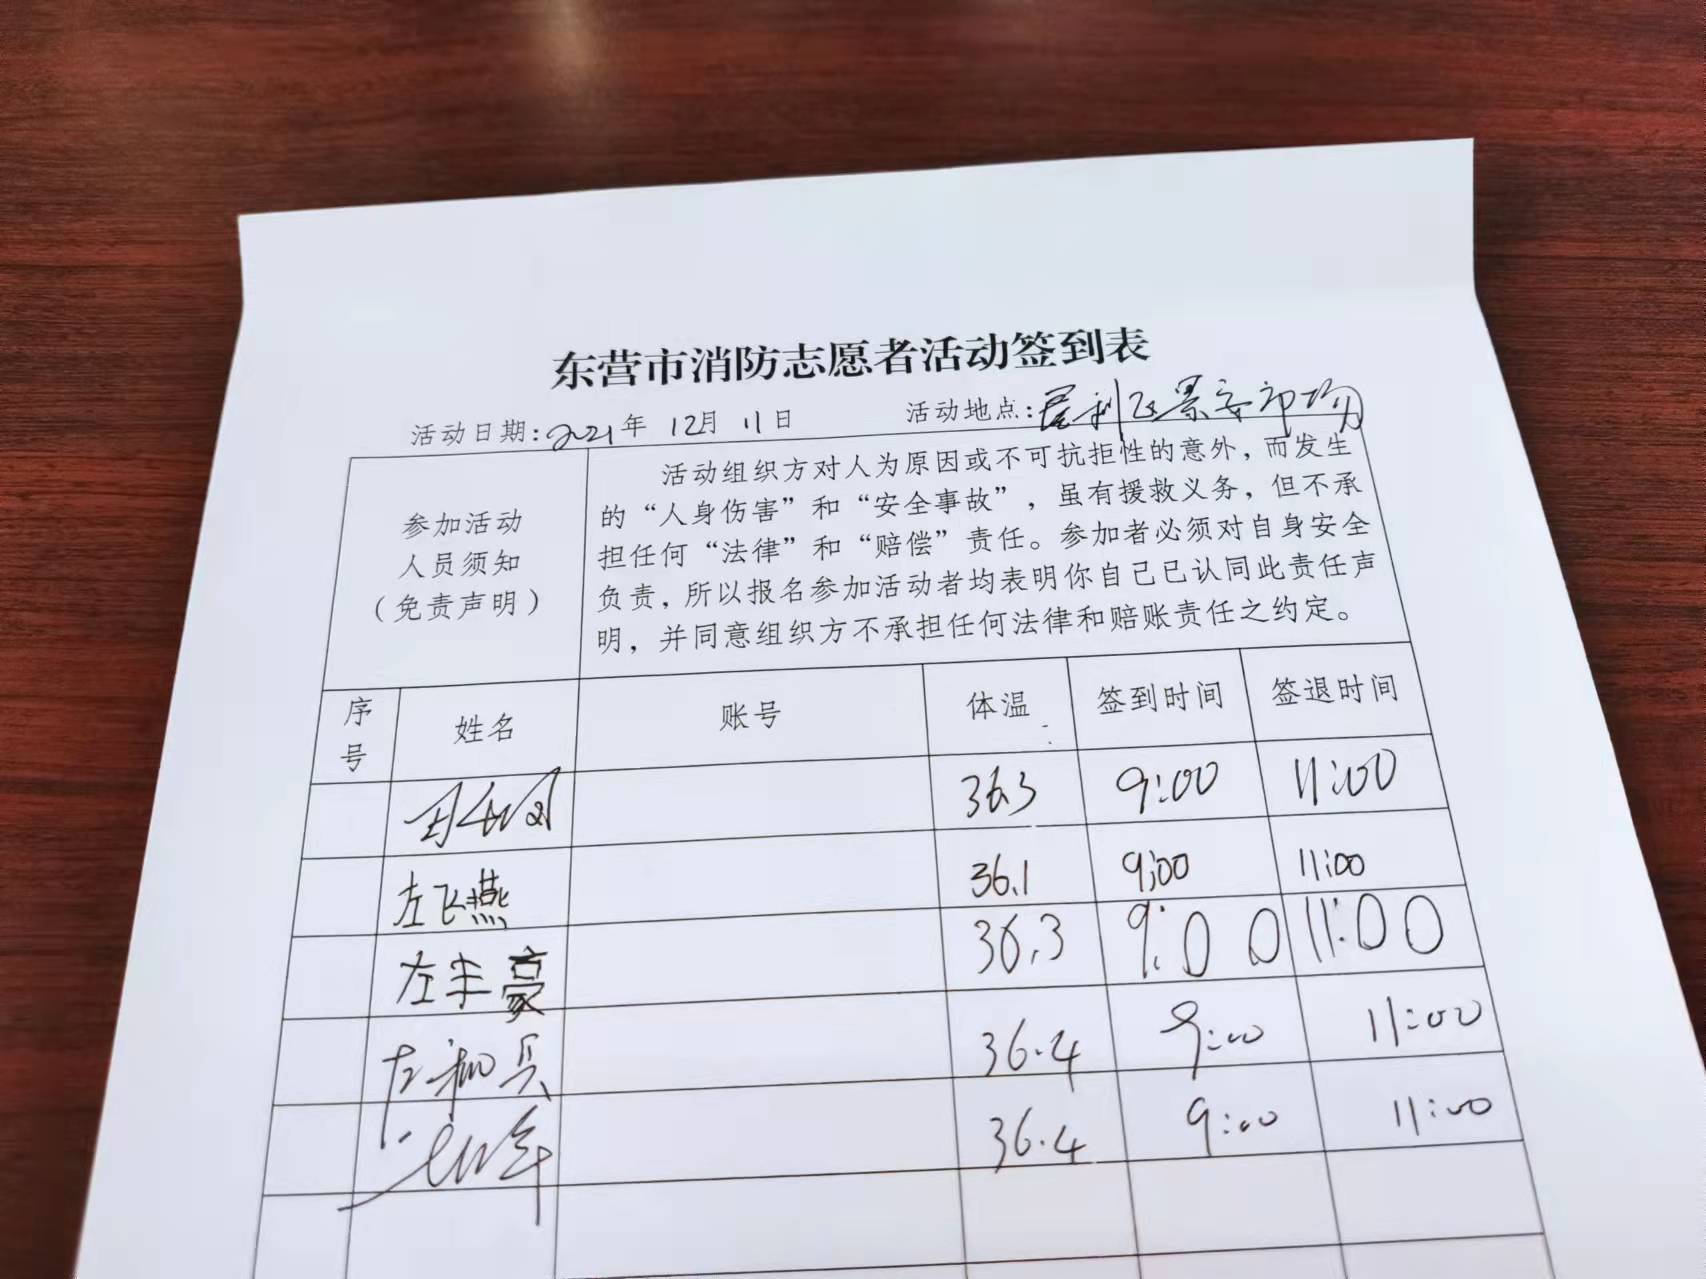 东营市消防志愿者活动签到表
活动日期:2021年 12月 11日 活动地点:垦利区景
参加活动
人员须知
（免责声明）
活动组织方对人为原因或不可抗拒性的意外，而发生
的“人身伤害”和“安全事故”，虽有援救义务，但不承
担任何“法律”和“赔偿”责任。参加者必须对自身安全
负责，所以报名参加活动者均表明你自己已认同此责任声
明，并同意组织方不承担任何法律和赔账责任之约定。
序号 姓名 账号 体温 签到时间 签退时间
36.3 9:00 11:00
左飞燕 36.1 9:00 11:00
左丰豪 36.3 9:00 11:00
36.4 9:00 11:00
36.4 9:00 11:00